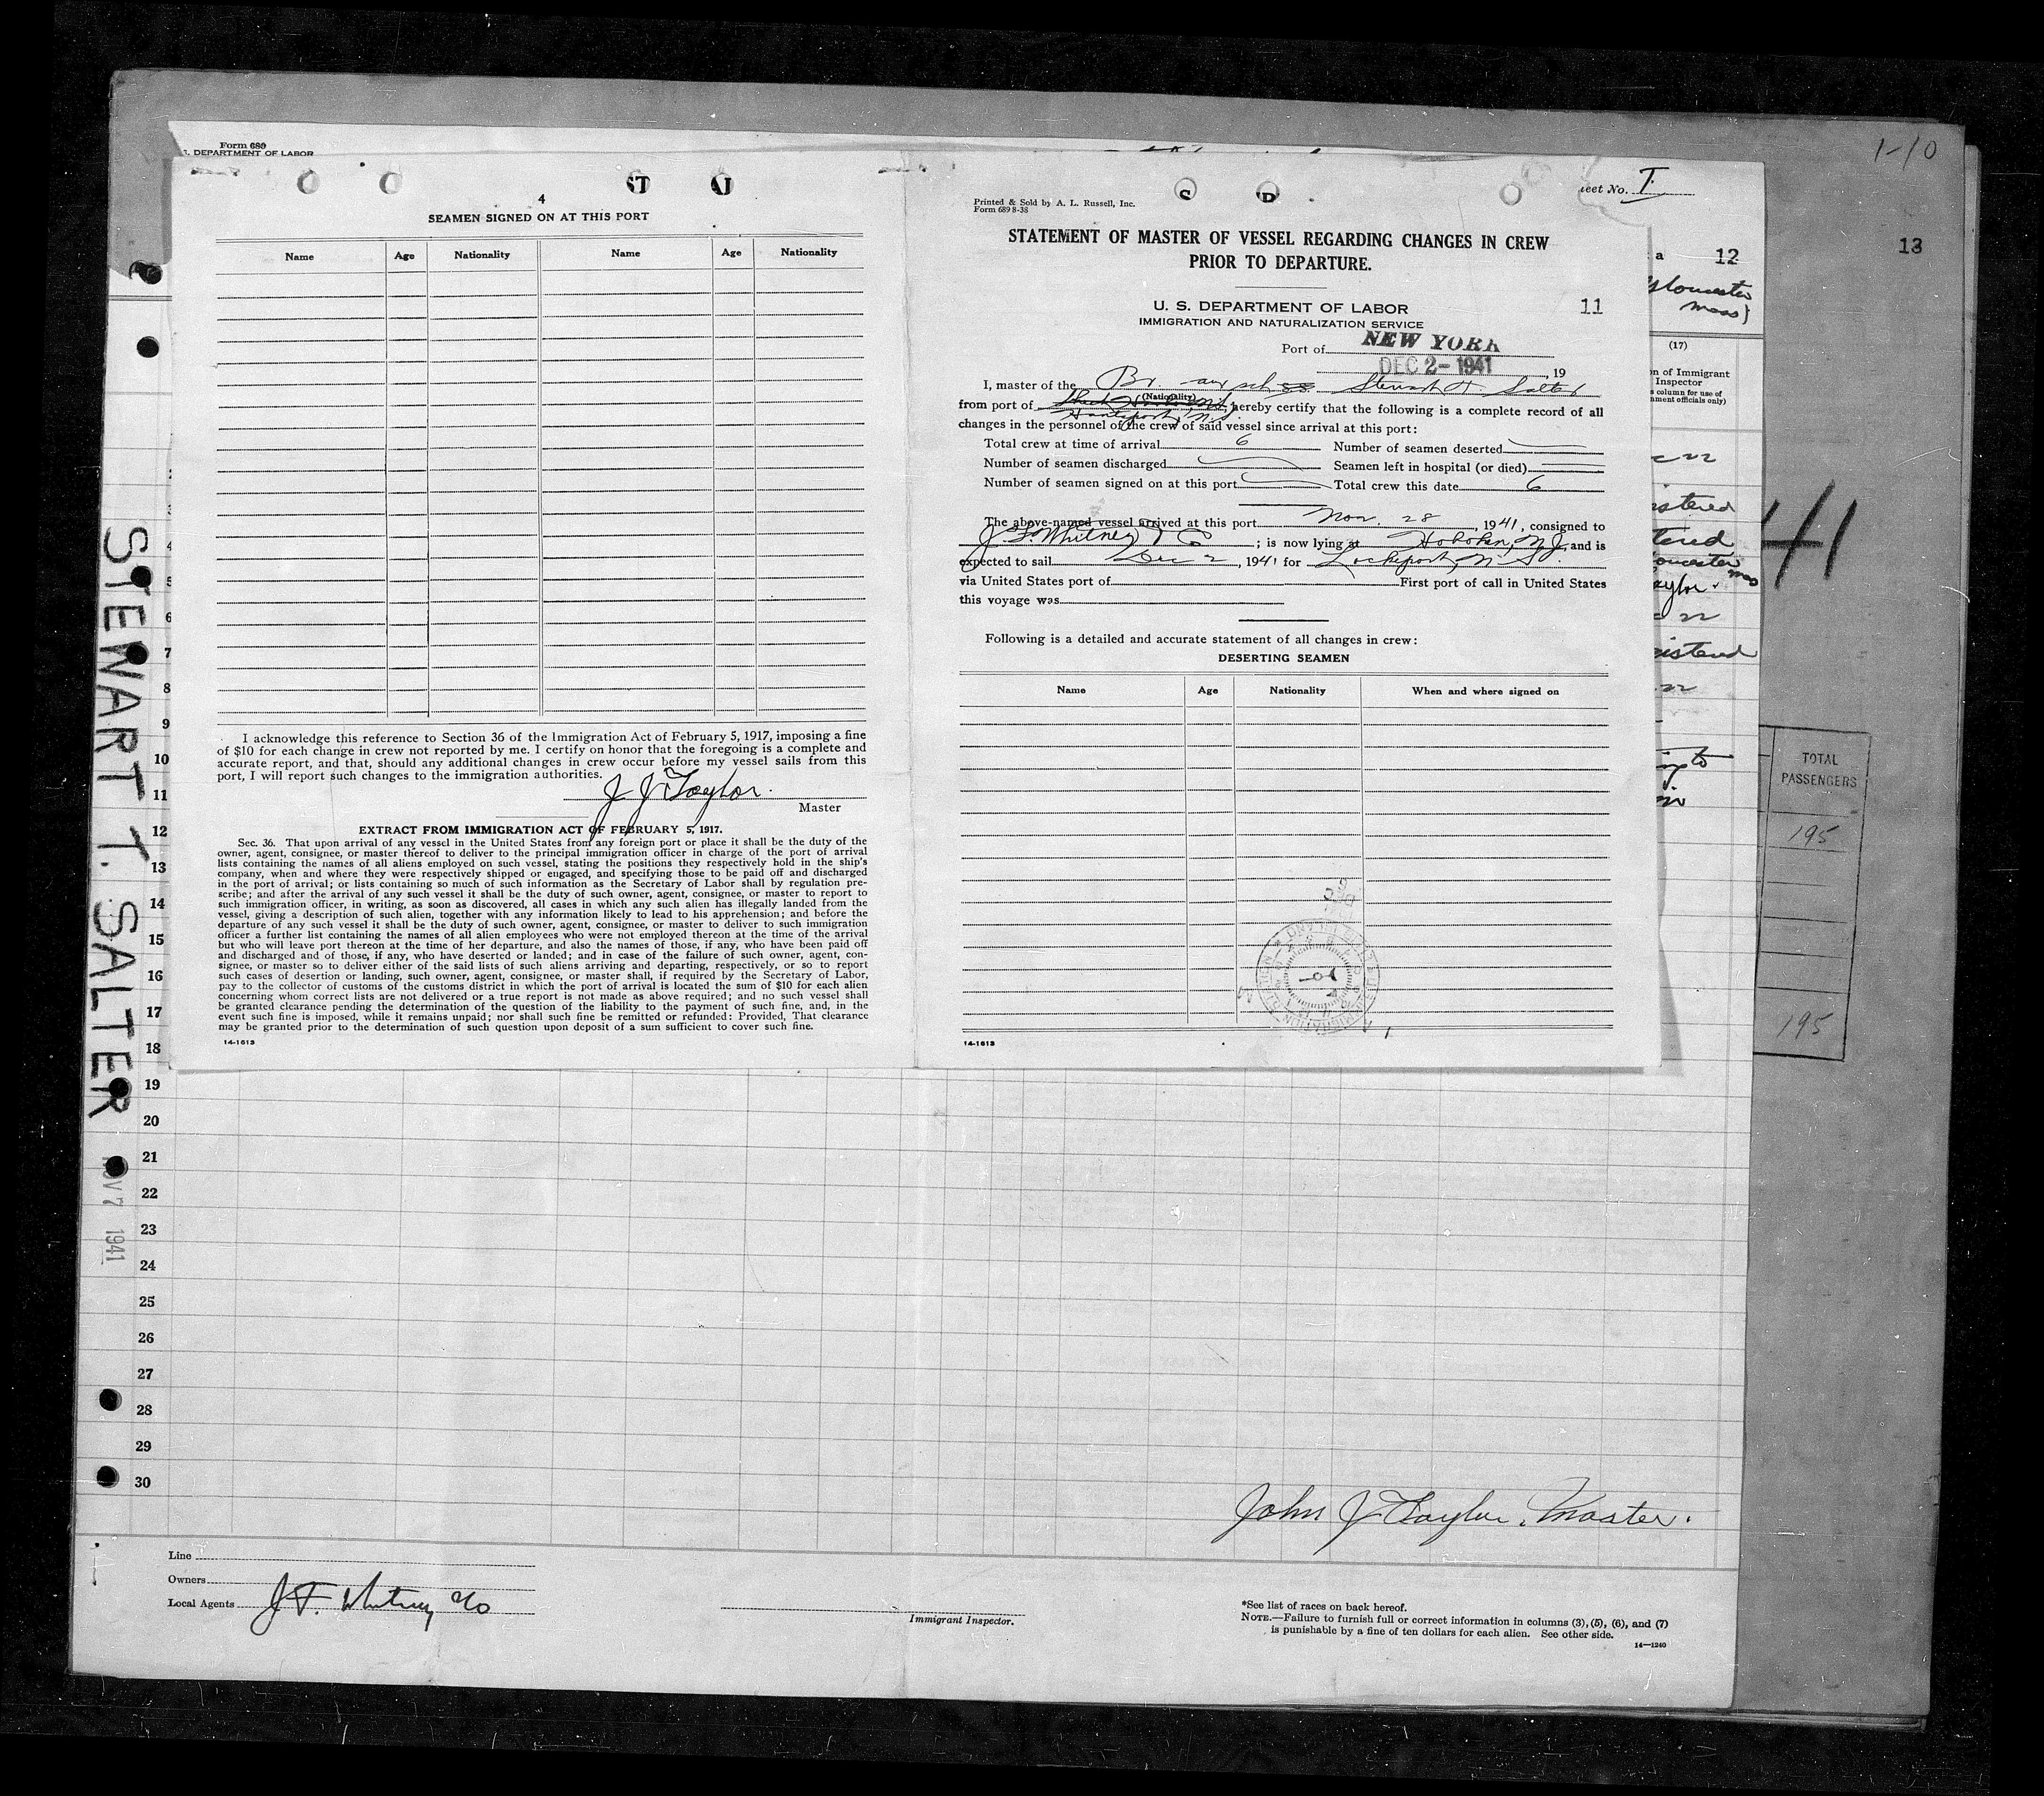 Form 689
S. DEPARTMENT OF LABOR
1-10
eet No. I
13
12
11
4
SEAMEN SIGNED ON AT THIS PORT
Name Age Nationality Name Age Nationality
I acknowledge this reference to Section 36 of the Immigration Act of February 5, 1917, imposing a fine
of $10 for each change in crew not reported by me. I certify on honor that the foregoing is a complete and
accurate report, and that, should any additional changes in crew occur before my vessel sails from this
port, I will report such changes to the immigration authorities.
J J Taylor.
Master
EXTRACT FROM IMMIGRATION ACT OF FEBRUARY 5, 1917.
Sec. 36. That upon arrival of any vessel in the United States from any foreign port or place it shall be the duty of the
owner, agent, consignee, or master thereof to deliver to the principal immigration officer in charge of the port of arrival
lists containing the names of all aliens employed on such vessel, stating the positions they respectively hold in the ship's
company, when and where they were respectively shipped or engaged, and specifying those to be paid off and discharged
in the port of arrival; or lists containing so much of such information as the Secretary of Labor shall by regulation pre-
scribe; and after the arrival of any such vessel it shall be the duty of such owner, agent, consignee, or master to report to
such immigration officer, in writing, as soon as discovered, all cases in which any such alien has illegally landed from the
vessel, giving a description of such alien, together with any information likely to lead to his apprehension; and before the
departure of any such vessel it shall be the duty of such owner, agent, consignee, or master to deliver to such immigration
officer a further list containing the names of all alien employees who were not employed thereon at the time of the arrival
but who will leave port thereon at the time of her departure, and also the names of those, if any, who have been paid off
and discharged and of those, if any, who have deserted or landed; and in case of the failure of such owner, agent, con-
signee, or master so to deliver either of the said lists of such aliens arriving and departing, respectively, or so to report
such cases of desertion or landing, such owner, agent, consignee, or master shall, if required by the Secretary of Labor,
pay to the collector of customs of the customs district in which the port of arrival is located the sum of $10 for each alien
concerning whom correct lists are not delivered or a true report is not made as above required; and no such vessel shall
be granted clearance pending the determination of the question of the liability to the payment of such fine, and, in the
event such fine is imposed, while it remains unpaid; nor shall such fine be remitted or refunded: Provided, That clearance
may be granted prior to the determination of such question upon deposit of a sum sufficient to cover such fine.
14-1613
Printed & Sold by A. L. Russell, Inc.
Form 689 8-38
STATEMENT OF MASTER OF VESSEL REGARDING CHANGES IN CREW
PRIOR TO DEPARTURE.
U. S. DEPARTMENT OF LABOR
IMMIGRATION AND NATURALIZATION SERVICE
Port of NEW YORK
DEC 2- 1941, 19
I, master of the Br. aux sch. ss. Stewart T. Salter
(Nationality)
from port of Hantsport, N.S. hereby certify that the following is a complete record of all
changes in the personnel of the crew of said vessel since arrival at this port:
Total crew at time of arrival 6 Number of seamen deserted
Number of seamen discharged Seamen left in hospital (or died)
Number of seamen signed on at this port Total crew this date 6
The above-named vessel arrived at this port Nov. 28, 1941, consigned to
J. F. Whitney & Co; is now lying at Hoboken, N.J. and is
expected to sail Dec 2, 1941 for Lockeport, N.S.
via United States port of First port of call in United States
this voyage was
Following is a detailed and accurate statement of all changes in crew:
DESERTING SEAMEN
Name Age Nationality When and where signed on
14-1613
a
Gloucester
Mass)
(17)
n of Immigrant
Inspector
s column for use of
nment officials only)
istered
tered
oucester
mass
aylor
istered
41
TOTAL
PASSENGERS
195
195
STEWART T. SALTER
NOV 7 1941
4
5
6
7
8
9
10
11
12
13
14
15
16
17
18
19
20
21
22
23
24
25
26
27
28
29
30
John J Taylor. Master.
Line
Owners
Local Agents J. F. Whitney & Co
Immigrant Inspector.
*See list of races on back hereof.
NOTE.—Failure to furnish full or correct information in columns (3), (5), (6), and (7)
is punishable by a fine of ten dollars for each alien. See other side.
14—1240